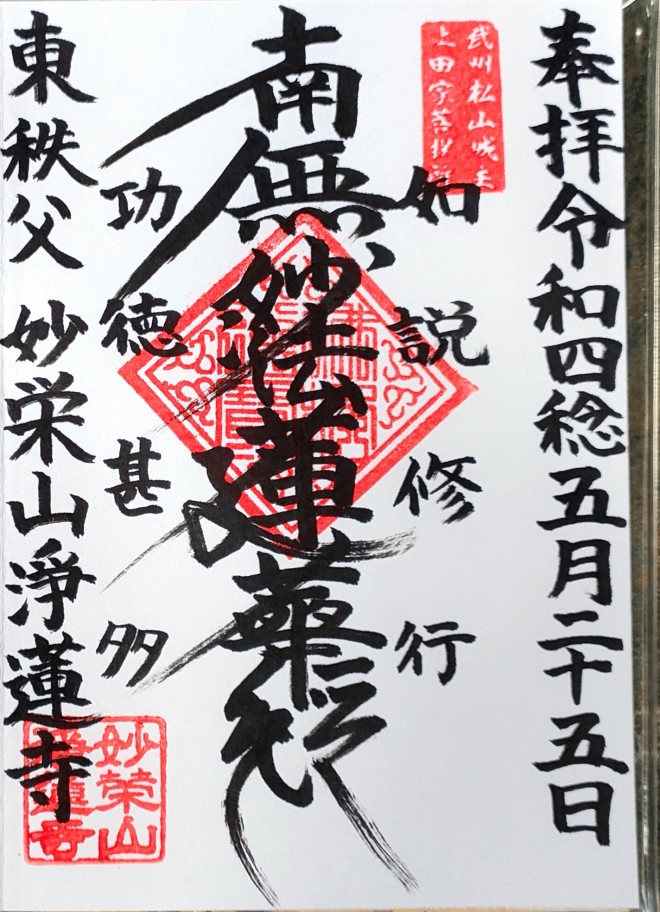 奉拝令和四稔五月二十五日
武州松山城主
上田家菩提所
如説修行
南無妙法蓮華経
功徳甚多
東秩父 妙栄山淨蓮寺
妙榮山
淨蓮寺